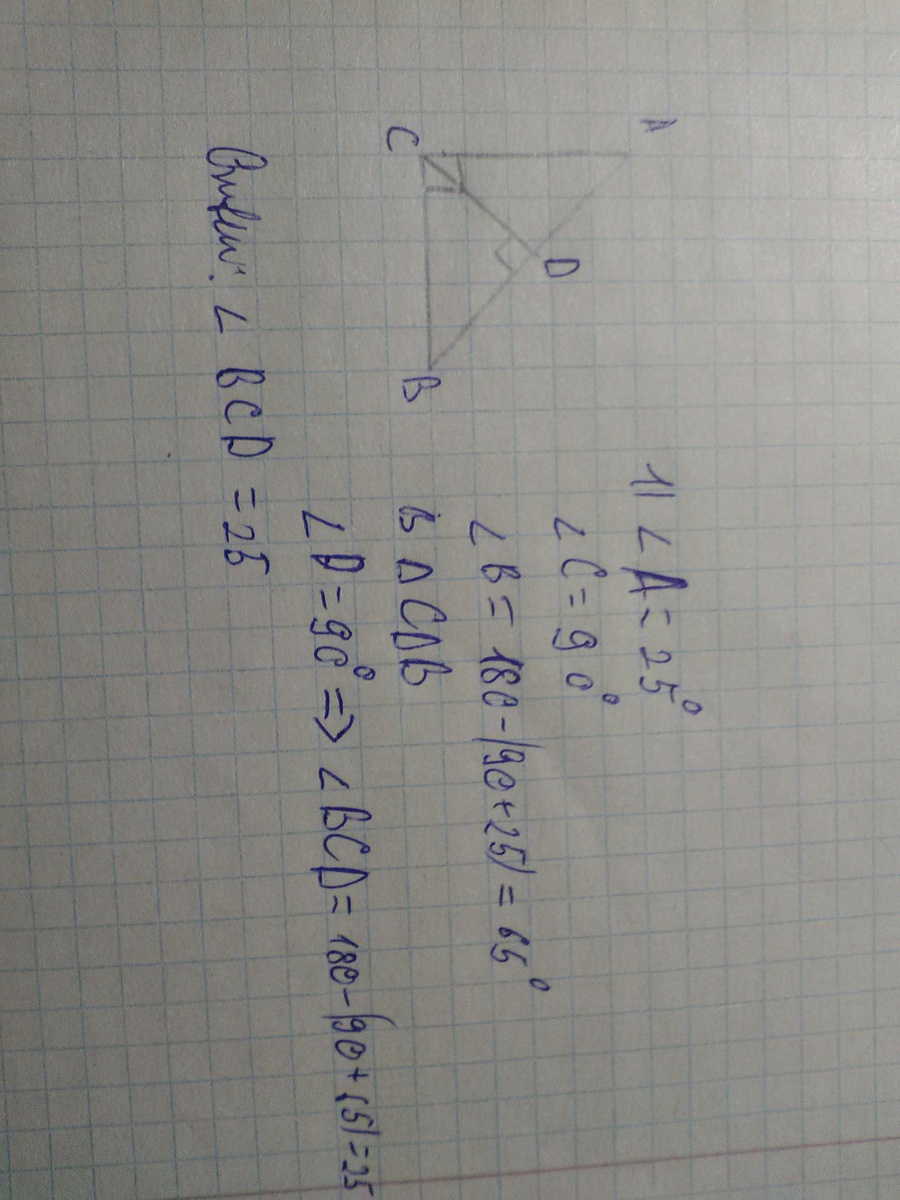 A
C
D
B
1) ∠ A = 25°
∠ C = 90°
∠ B = 180 - (90 + 25) = 65°
В Δ CDB
∠ D = 90° => ∠ BCD = 180 - (90 + 65) = 25
Ответ: ∠ BCD = 25